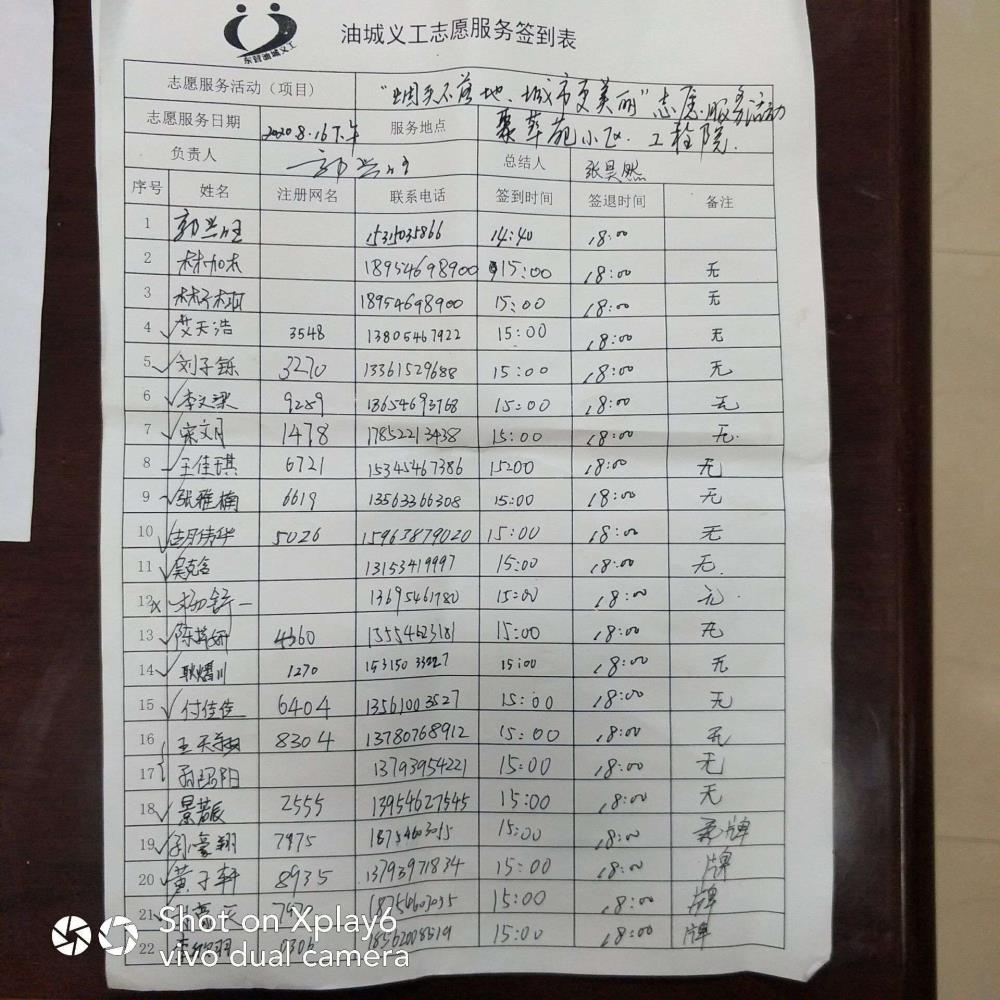 东营油城义工
油城义工志愿服务签到表
志愿服务活动（项目） "烟头不落地、城市更美丽"志愿服务活动
志愿服务日期 2020.8.16下午 服务地点 小区. 工程院.
负责人 郭兴旺 总结人 张昊然
序号 姓名 注册网名 联系电话 签到时间 签退时间 备注
1 郭兴旺 14:40 18:00
2 林加木 18954698900 15:00 18:00 无
3 18954698900 15:00 18:00 无
4 艾天浩 3548 13805467922 15:00 18:00 无
5 刘子铄 3270 13361529688 15:00 18:00 无
6 李文梁 9289 18654693768 15:00 18:00 无
7 宋文月 1478 17852213438 15:00 18:00 无.
8 王佳琪 6721 15345467386 15:00 18:00 无
9 张雅楠 6619 13563366308 15:00 18:00 无
10 胡倩华 5026 15963879020 15:00 18:00 无
11 吴克含 13153419997 15:00 18:00 无.
12 杨舒一 13695461780 15:00 18:00 无.
13 4360 15554623181 15:00 18:00 无
14 1270 15315033227 15:00 18:00 无
15 付佳佳 6404 13561003527 15:00 18:00 无
16 8304 13780768912 15:00 18:00 无
17 13793954221 15:00 18:00 无
18 2555 13954627545 15:00 18:00 无
19 孙豪翔 7975 15:00 18:00 牌
20 黄子轩 8935 13793971834 15:00 18:00 牌
21 15:00 18:00 牌
22 0306 18562008519 15:00 18:00 牌
Shot on Xplay6
vivo dual camera